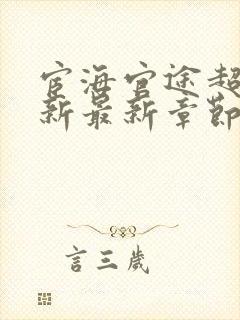 宦海官途超
新最新章節
言三歲